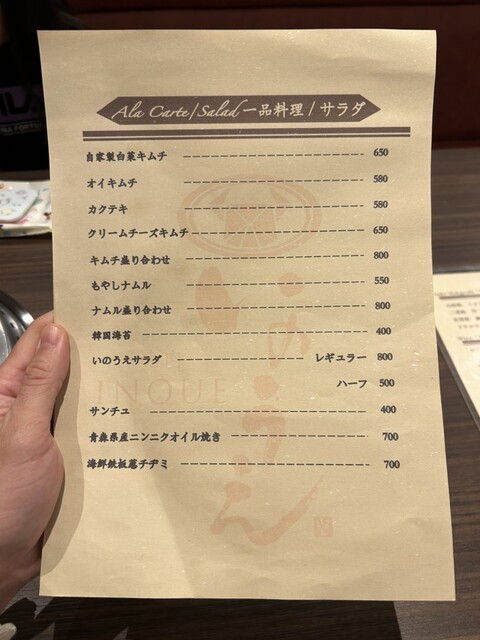 Ala Carte/Salad 一品料理 / サラダ
自家製白菜キムチ 650
オイキムチ 580
カクテキ 580
クリームチーズキムチ 650
キムチ盛り合わせ 800
もやしナムル 550
ナムル盛り合わせ 800
韓国海苔 400
いのうえサラダ レギュラー 800
ハーフ 500
サンチュ 400
青森県産ニンニクオイル焼き 700
海鮮鉄板葱チヂミ 700
いのうえ
INOUE